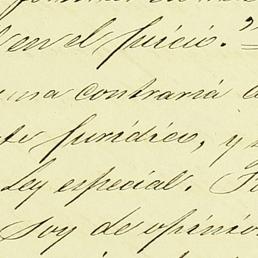 en el juicio."
una contraria a
te juridico, y
Ley especial.
Soy de opinio